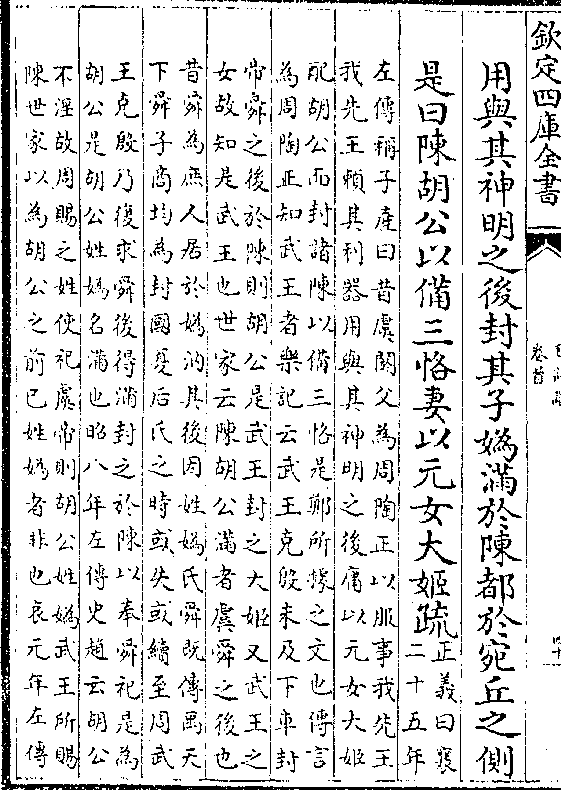 欽定四庫全書
卷首
用與其神明之後封其子媯滿於陳都於宛丘之側
是曰陳胡公以備三恪妻以元女大姬疏
正義曰襄
二十五年
左傳稱子産曰昔虞閼父為周陶正以服事我先王
我先王賴其利器用與其神明之後庸以元女大姬
配胡公而封諸陳以備三恪是鄭所據之文也傳言
為周陶正知武王者樂記云武王克殷未及下車封
帝舜之後於陳則胡公是武王封之大姬又武王之
女故知是武王也世家云陳胡公滿者虞舜之後也
昔舜為庶人居於媯汭其後因姓媯氏舜既傳禹天
下舜子商均為封國夏后氏之時或失或續至周武
王克殷乃復求舜後得滿封之於陳以奉舜祀是為
胡公是胡公姓媯名滿也昭八年左傳史趙云胡公
不淫故周賜之姓使祀虞帝則胡公姓媯武王所賜
陳世家以為胡公之前已姓媯者非也哀元年左傳